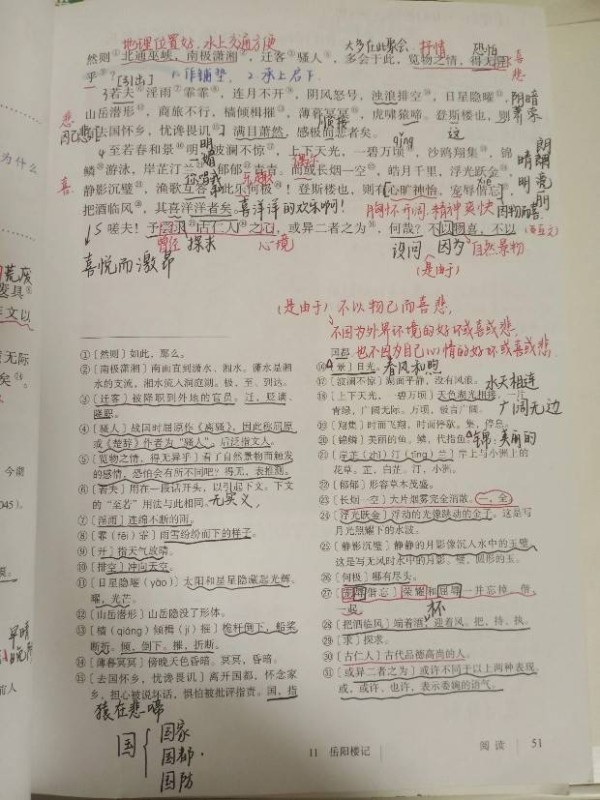 地理位置好,水上交通方便
大多在此聚会 抒情 恐怕
然则①北通巫峡,南极潇湘②,迁客③骚人④,多会于此,览物之情,得无异
乎⑤?[引出] 1.作铺垫 2.承上启下 喜悲
若夫⑥淫雨⑦霏霏⑧,连月不开⑨,阴风怒号,浊浪排空⑩,日星隐曜⑪,
阴暗
山岳潜形⑫,商旅不行,樯倾楫摧⑬,薄暮冥冥⑭,虎啸猿啼。登斯楼也,则
有去国怀乡,忧谗畏讥⑮,满目萧然,感极而悲者矣。
悲 因己悲 这
至若春和景明⑯,波澜不惊⑰,上下天光,一碧万顷⑱,沙鸥翔集⑲,锦
鳞⑳游泳,岸芷汀兰㉑,郁郁㉒青青。而或长烟一空㉓,皓月千里,浮光跃金㉔,
静影沉璧㉕,渔歌互答,此乐何极㉖!登斯楼也,则有心旷神怡,宠辱偕忘㉗,
喜 晴 明
把酒临风㉘,其喜洋洋者矣。喜洋洋的欢乐啊! 胸怀开阔,精神爽快 因物而喜
嗟夫!予尝求㉙古仁人㉚之心,或异二者之为㉛,何哉?不以物喜,不以
曾经 探求 心境 设问 因为 自然景物
喜悦而激昂 (是由于)
(是由于)不以物己而喜悲,
不因为外界环境的好坏或喜或悲
也不因为自己心情的好坏或喜或悲.
①〔然则〕如此,那么。
②〔南极潇湘〕南面直到潇水、湘水。潇水是湘
水的支流,湘水流入洞庭湖。极,至、到达。
③〔迁客〕被降职到外地的官员。迁,贬谪、
降职。
④〔骚人〕战国时屈原作《离骚》,因此称屈原
或《楚辞》作者为“骚人”。后泛指文人。
⑤〔览物之情,得无异乎〕看了自然景物而触发
的感情,恐怕会有所不同吧?得无,表推测。
⑥〔若夫〕用在一段话开头,以引起下文。下文
的“至若”用法与此相同。无实义,
⑦〔淫雨〕连绵不断的雨。
⑧〔霏(fēi)霏〕雨雪纷纷而下的样子。
⑨〔开〕指天气放晴。
⑩〔排空〕冲向天空。
⑪〔日星隐曜(yào)〕太阳和星星隐藏起光辉。
曜,光芒。
⑫〔山岳潜形〕山岳隐没了形体。
⑬〔樯(qiáng)倾楫(jí)摧〕桅杆倒下,船桨
断折。倾,倒下。摧,折断。
⑭〔薄暮冥冥〕傍晚天色昏暗。冥冥,昏暗。
⑮〔去国怀乡,忧谗畏讥〕离开国都,怀念家
乡,担心被说坏话,惧怕被批评指责。国,指
国都。
⑯〔景〕日光。 春风和煦
⑰〔波澜不惊〕湖面平静,没有风浪。 水天相连
⑱〔上下天光,一碧万顷〕天色湖光相接,一片
青绿,广阔无际。万顷,极言广阔。 广阔无边
⑲〔翔集〕时而飞翔,时而停歇。集,停息。
⑳〔锦鳞〕美丽的鱼。鳞,代指鱼。 锦:美丽的
㉑〔岸芷(zhǐ)汀(tīng)兰〕岸上与小洲上的
花草。芷,白芷。汀,小洲。
㉒〔郁郁〕形容草木茂盛。
㉓〔长烟一空〕大片烟雾完全消散。一,全。
㉔〔浮光跃金〕浮动的光像跳动的金子。这是写
月光照耀下的水波。
㉕〔静影沉璧〕静静的月影像沉入水中的玉璧。
这是写无风时水中的月影。璧,圆形的玉。
㉖〔何极〕哪有尽头。
㉗〔宠辱偕忘〕荣耀和屈辱一并忘掉。偕,
一起。 杯
㉘〔把酒临风〕端着酒,迎着风。把,持、执。
㉙〔求〕探求。
㉚〔古仁人〕古代品德高尚的人。
㉛〔或异二者之为〕或许不同于以上两种表现。
或,或许、也许,表示委婉的语气。
猿在悲啼
国 国家
国都.
国防
11 岳阳楼记
阅读 51